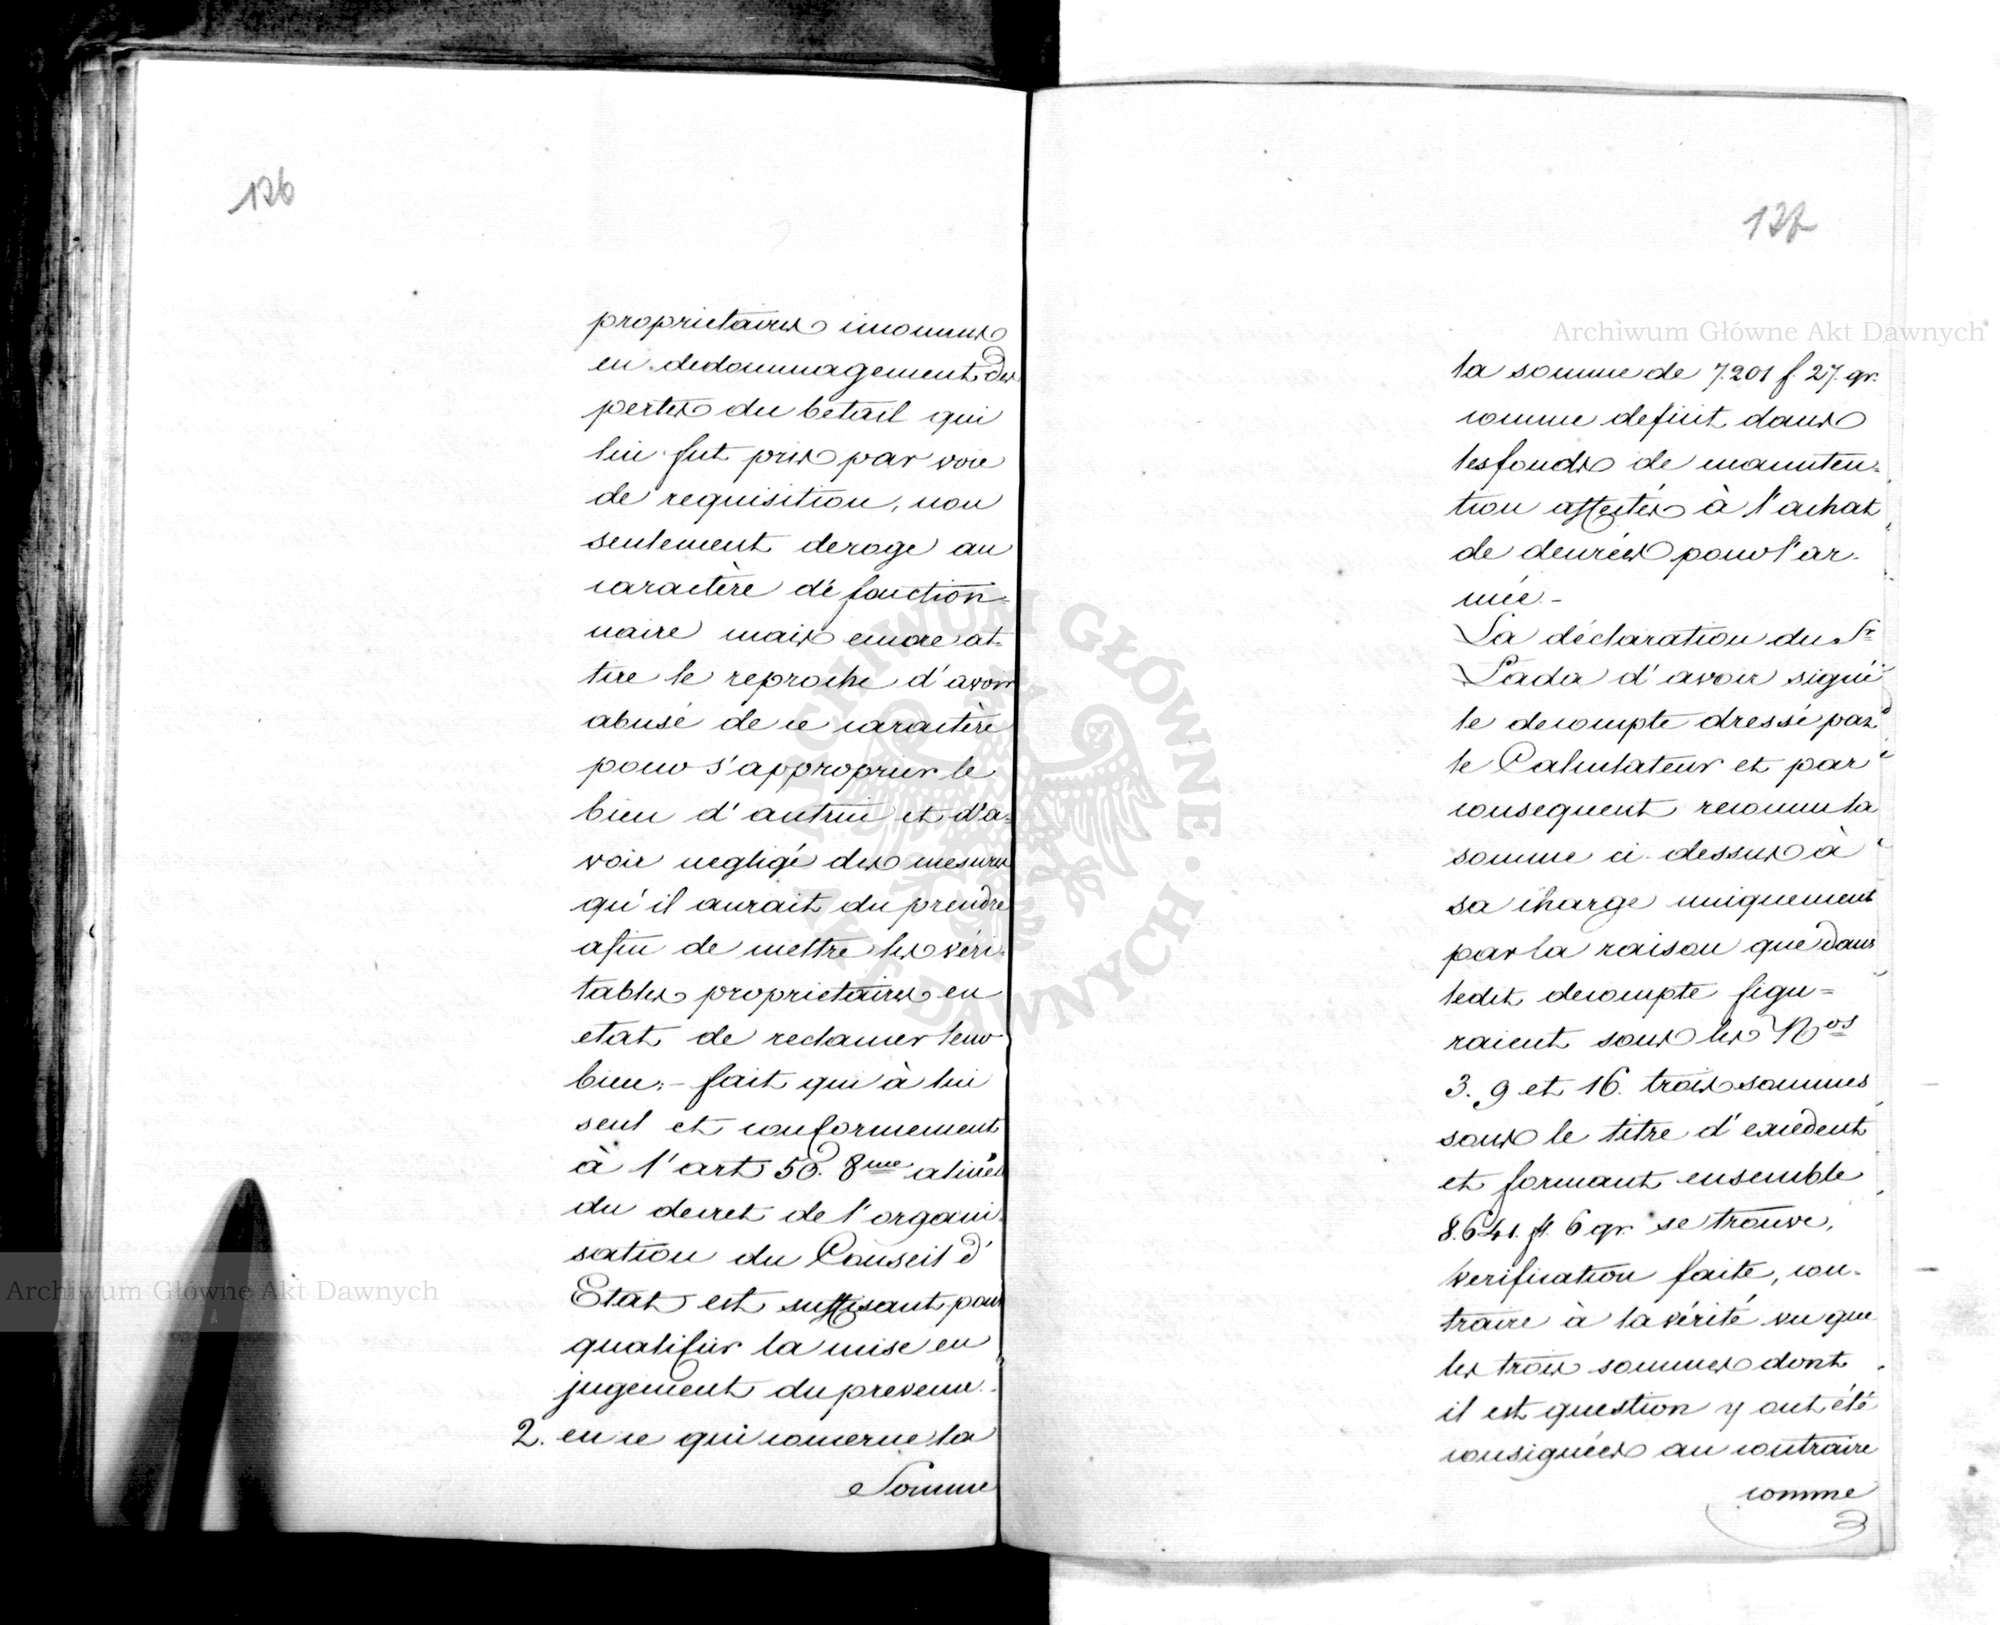 126
proprietaires inconnus
en dedommagement des
pertes du betail qui
lui fut pris par voie
de requisition, non
seulement deroge au
caractère dé fonction-
naire mais encore at-
tire le reproche d'avoir
abusé de ce caractère
pour s'approprier le
bien d'autrui et d'a-
voir negligé des mesures
qu'il aurait du prendre
afin de mettre les véri-
tables proprietaires en
etat de reclamer leur
bien; - fait qui à lui
seul et conformement
à l'art 50. 8me alinéa
du decret de l'organi-
sation du Conseil d'
Etat est suffisant pour
qualifier la mise en
jugement du prevenu.
2. en ce qui concerne la
Somme
127
la somme de 7.201 f. 27. gr.
comme deficit dans
les fonds de manuten-
tion affectés à l'achat
de denrées pour l'ar-
mée. -
La déclaration du Sr
Lada d'avoir signé
le decompte dressé par
le Calculateur et par
consequent reconnu la
somme ci dessus à
sa charge uniquement
par la raison que dans
ledit decompte figu=
raient sous les Nos
3. 9 et 16. trois sommes
sous le titre d'excédent
et formant ensemble
8.641. fl. 6 gr. se trouve,
verification faite, con-
traire à la vérité vu que
les trois sommes dont
il est question y ont été
consignées au contraire
comme
Archiwum Główne Akt Dawnych
Archiwum Główne Akt Dawnych
ARCHIWUM GŁÓWNE AKT DAWNYCH